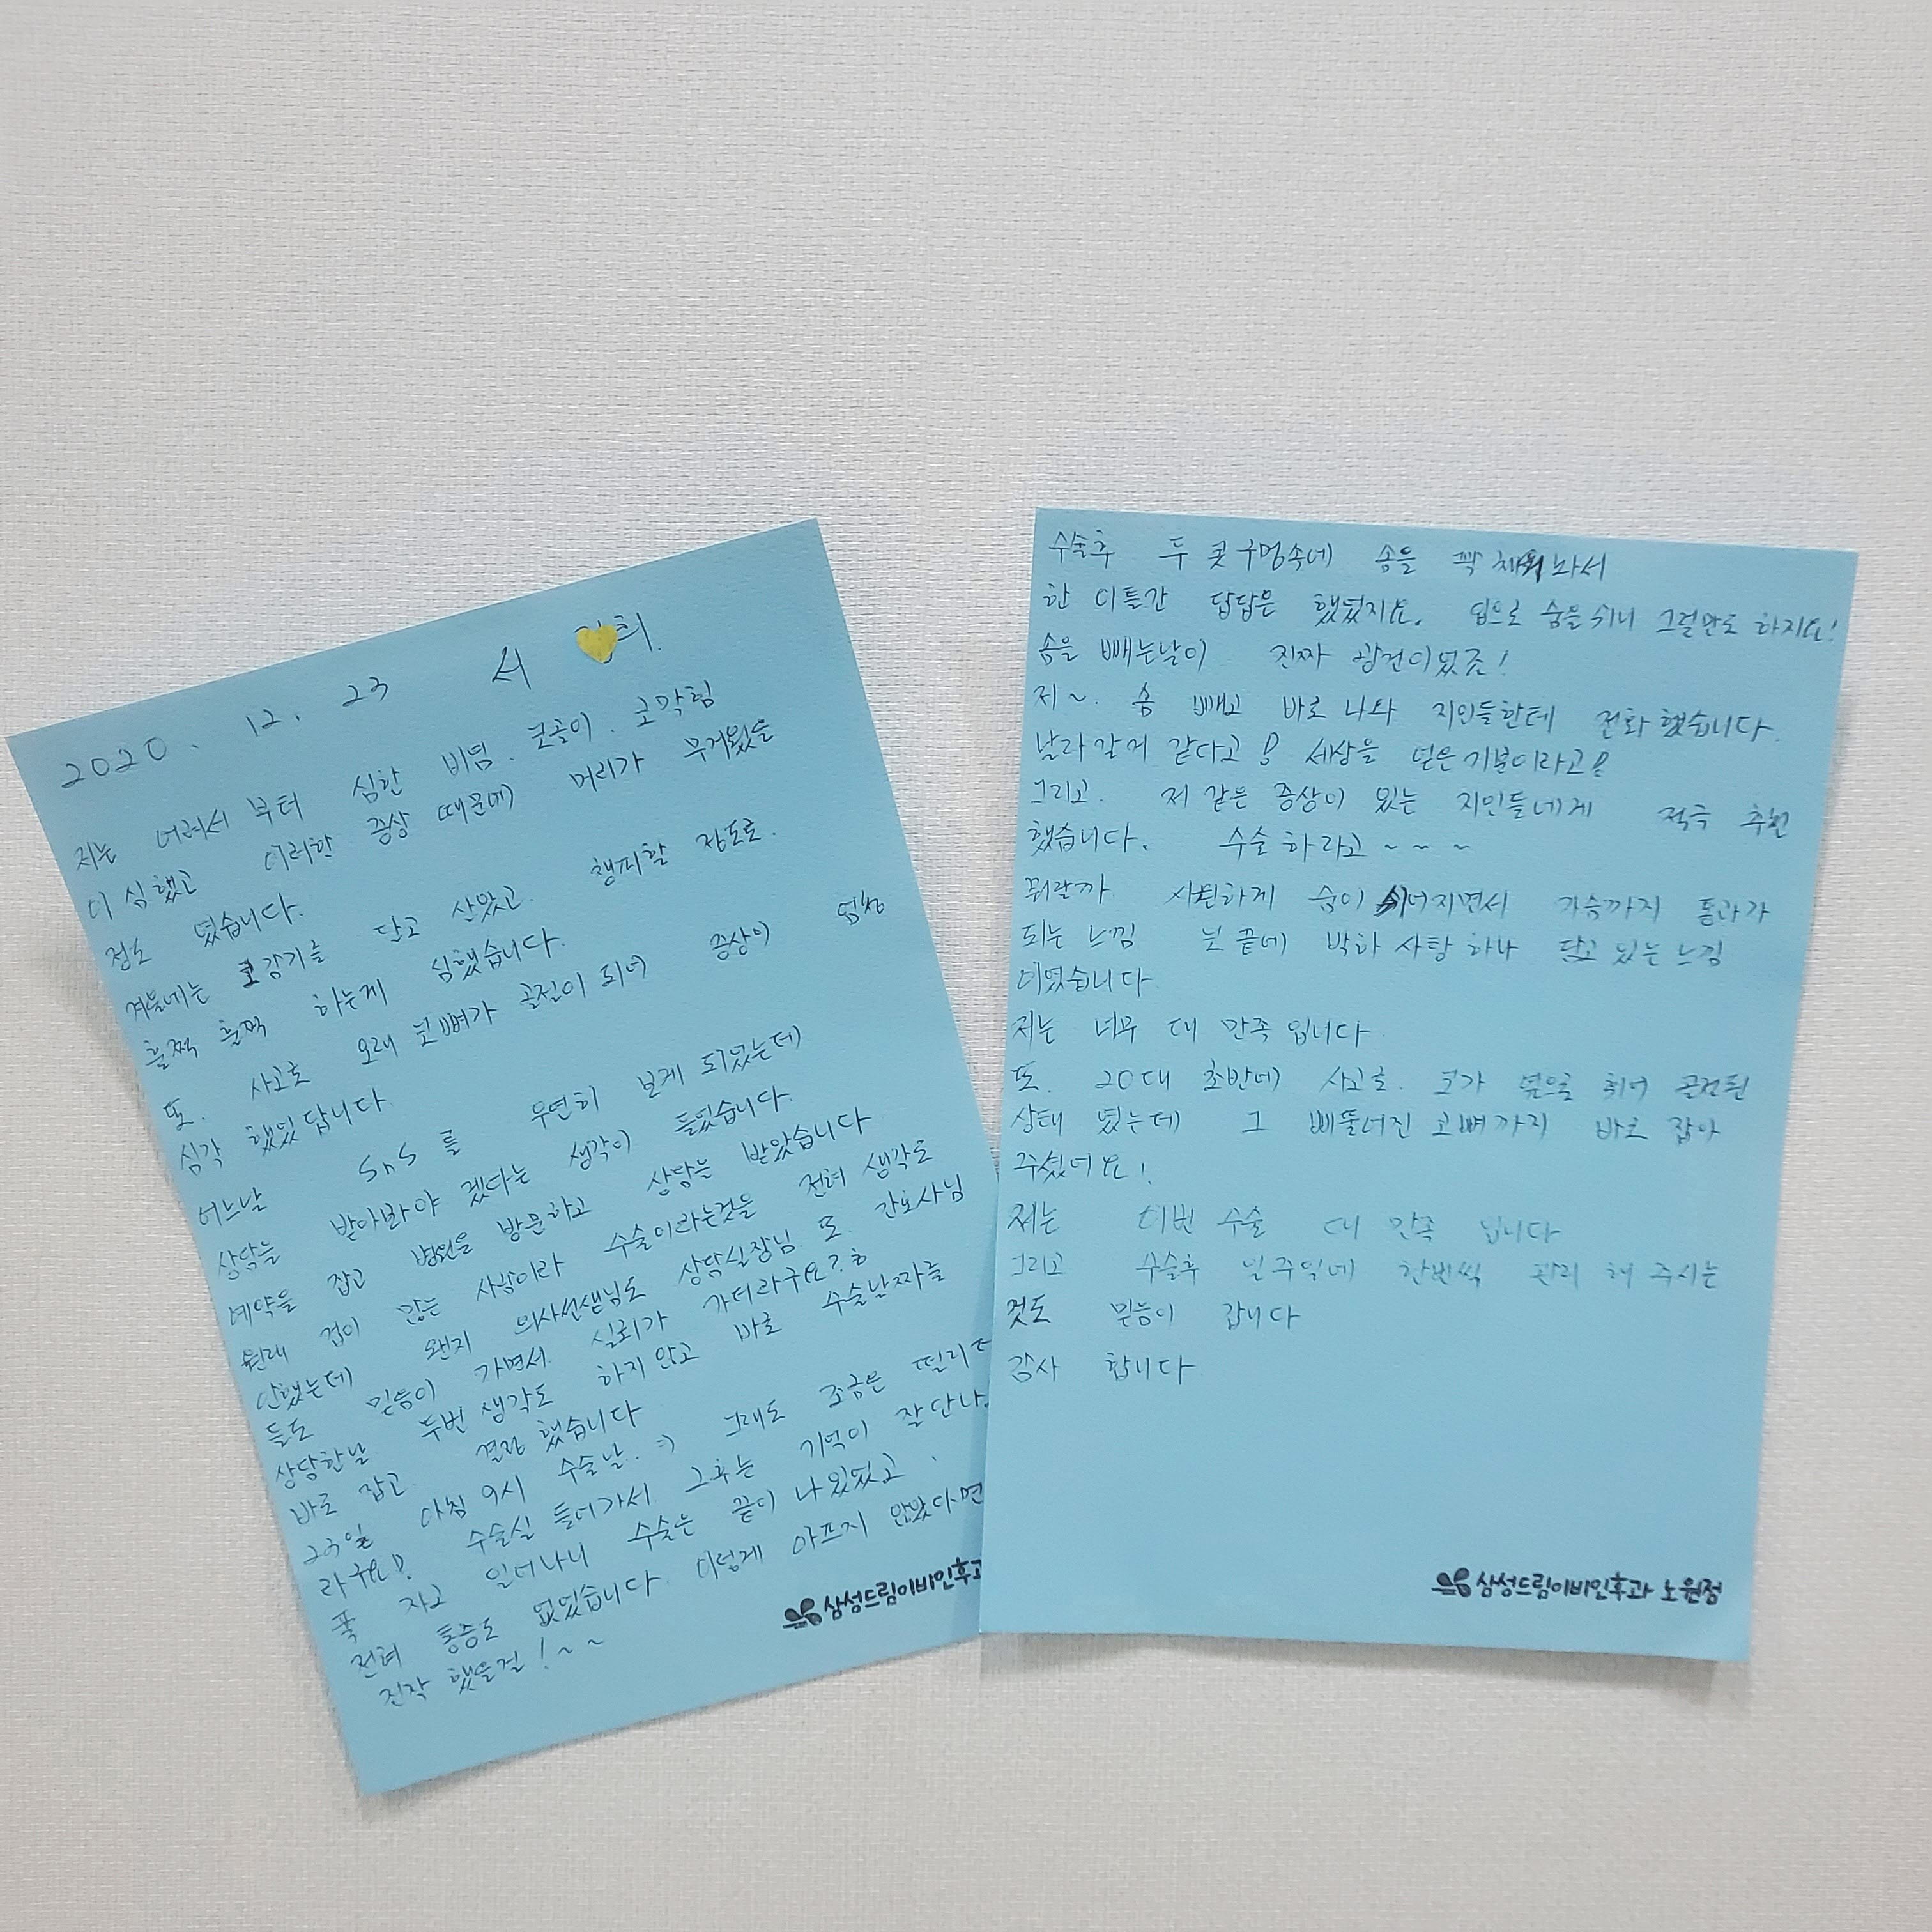 2020. 12. 23 서 희.
저는 어려서 부터 심한 비염. 코골이. 코막힘
이 심했고 이러한 증상 때문에 머리가 무거웠을
정도 였습니다.
겨울에는 코감기를 달고 살았고. 챙피할 정도로.
훌쩍 훌쩍 하는게 심했습니다.
또. 사고로 오래 코뼈가 골절이 되어 증상이 엄청
심각 했었답니다.
어느날 SnS를 우연히 보게 되었는데
상담을 받아봐야 겠다는 생각이 들었습니다.
예약을 잡고 병원을 방문하고 상담을 받았습니다
원래 겁이 많은 사람이라 수술이라는것을 전혀 생각도
안했는데 왠지 의사선생님도 상담실장님. 또. 간호사님
들도 믿음이 가면서. 신뢰가 가더라구요?ㅎ
상담한날 두번 생각도 하지않고 바로 수술날짜를
바로 잡고. 결정 했습니다
23일 아침 9시 수술날.:) 그래도 조금은 떨리더
라구요! 수술실 들어가서 그후는 기억이 잘 안나.
푹 자고 일어나니 수술은 끝이 나 있었고.
전혀 통증도 없었습니다. 이렇게 아프지 않았다면
진작 했을걸!~~
삼성드림이비인후과
수술후 두 콧구멍속에 솜을 꽉 채워놔서
한 이틀간 답답은 했었지요. 입으로 숨을쉬니 그럴만도 하지요!
솜을 빼는날이 진짜 관건이였죠!
저~. 솜 빼고 바로 나와 지인들한테 전화했습니다.
날라갈거 같다고! 세상을 얻은기분이라고!
그리고. 저 같은 증상이 있는 지인들에게 적극 추천
했습니다. 수술하라고~~~
뭐랄까 시원하게 숨이 쉬어지면서 가슴까지 통과가
되는 느낌 코 끝에 박하 사탕 하나 달고 있는 느낌
이였습니다.
저는 너무 대 만족 입니다
또. 20대 초반에 사고로. 코가 옆으로 휘어 골절된
상태 였는데 그 삐뚤어진 코뼈까지 바로 잡아
주셨어요!
저는 이번 수술 대 만족 입니다
그리고 수술후 일주일에 한번씩 관리 해 주시는
것도 믿음이 갑니다
감사 합니다
삼성드림이비인후과 노원점